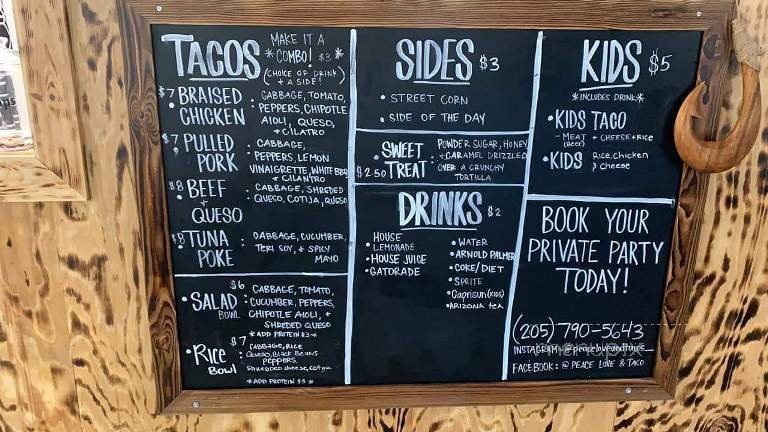 TACOS
MAKE IT A
*COMBO! $3*
(CHOICE OF DRINK
+ A SIDE!)
$7 BRAISED CHICKEN : CABBAGE, TOMATO,
PEPPERS, CHIPOTLE
AIOLI, QUESO,
+ CILATRO
$7 PULLED PORK : CABBAGE,
PEPPERS, LEMON
VINAIGRETTE, WHITE BBQ
+ CILANTRO
$8 BEEF + QUESO : CABBAGE, SHREDED
QUESO, COTIJA, QUESO
$8 TUNA POKE : CABBAGE, CUCUMBER,
TERI SOY, + SPICY
MAYO
$6
• SALAD BOWL : CABBAGE, TOMATO,
CUCUMBER, PEPPERS,
CHIPOTLE AIOLI, +
SHREDED QUESO
*ADD PROTEIN $3*
$7
• Rice Bowl : CABBAGE, RICE
QUESO, BLACK BEANS
PEPPERS,
Shredded cheese, cotija
*ADD PROTEIN $3*
SIDES $3
• STREET CORN
• SIDE OF THE DAY
• SWEET TREAT :
$2.50
POWDER SUGAR, HONEY
+ CARAMEL DRIZZLED
OVER A CRUNCHY
TORTILLA
DRINKS $2
• HOUSE LEMONADE
• HOUSE JUICE
• GATORADE
• WATER
• ARNOLD PALMER
• COKE/DIET
• SPRITE
• Caprisun (KIDS)
• ARIZONA TEA
KIDS $5
*INCLUDES DRINK*
• KIDS TACO
- MEAT + CHEESE + RICE
(Beef)
• KIDS Rice, Chicken
& Cheese
BOOK YOUR
PRIVATE PARTY
TODAY!
(205) 790-5643
INSTAGRAM: @peaceloveandtacos
FACEBOOK: @ PEACE LOVE & TACO
menupix